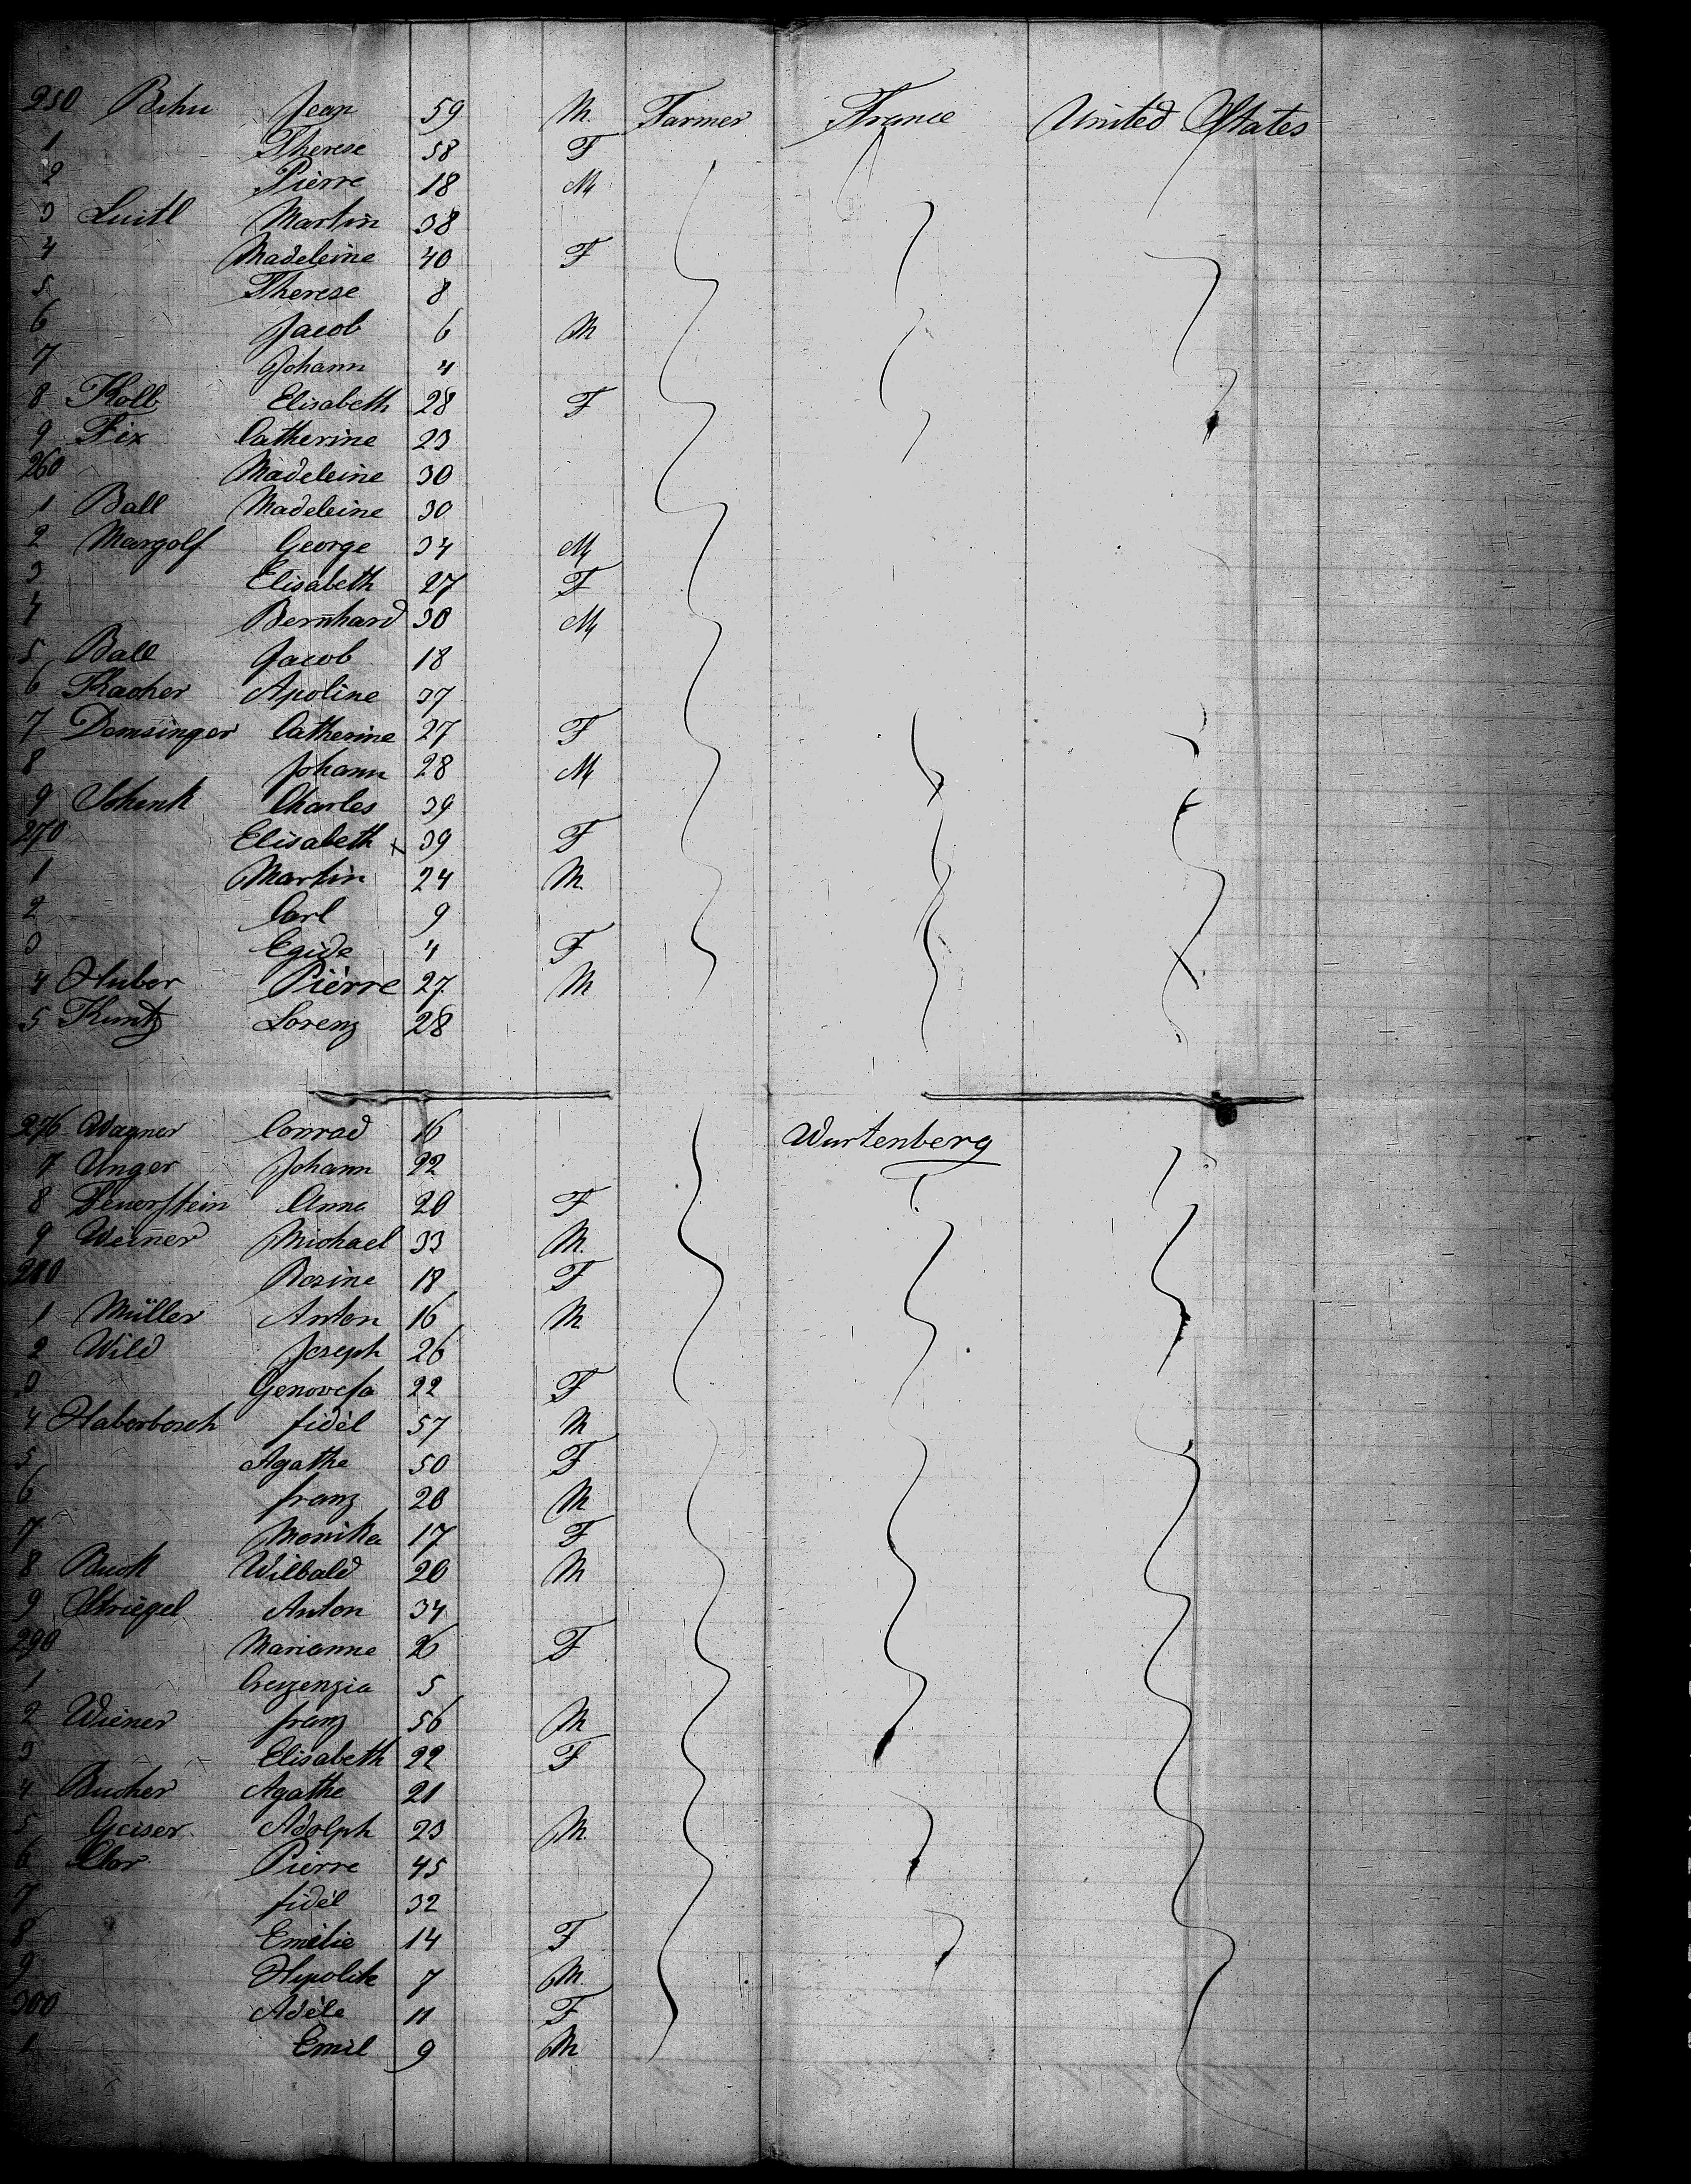 250 Bihu Jean 59 M. Farmer France United States
1 Therese 58 F
2 Pierre 18 M
3 Luitl Martin 38
4 Madeleine 40 F
5 Therese 8
6 Jacob 6 M
7 Johann 4
8 Kolb Elisabeth 28 F
9 Fix Catherine 23
260 Madeleine 30
1 Ball Madeleine 30
2 Margolf George 34 M
3 Elisabeth 27 F
4 Bernhard 30 M
5 Ball Jacob 18
6 Kacher Apoline 37
7 Domsinger Catherine 27 F
8 Johann 28 M
9 Schenk Charles 39
270 Elisabeth x 39 F
1 Martin 24 M.
2 Carl 9
3 Egide 4 F
4 Huber Pierre 27 M
5 Kuntz Lorenz 28
276 Wagner Conrad 16 Wurtenberg
7 Unger Johann 22
8 Feuerstein Anna 20 F
9 Weiner Michael 33 M.
280 Rosine 18 F
1 Müller Anton 16 M
2 Wild Joseph 26
3 Genovefa 22 F
4 Haberbosch fidèl 57 M
5 Agathe 50 F
6 franz 20 M
7 Monika 17 F
8 Buck Wilbald 20 M
9 Striegel Anton 34
290 Marianne 26 F
1 Crezenzia 5
2 Wiener franz 56 M
3 Elisabeth 22 F
4 Bucher Agathe 21
5 Geiser Adolph 23 M.
6 Clor Pierre 45
7 fidèl 32
8 Emelie 14 F
9 Hypolite 7 M.
300 Adèle 11 F
1 Emil 9 M